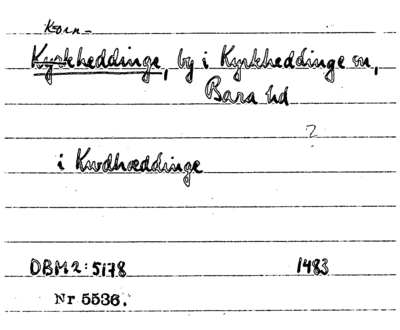 Korn-
Kyrkheddinge, by i Kyrkheddinge sn,
Bara hd
?
i Kwdhæddinge
DBM2:5178 1483
Nr 5536.